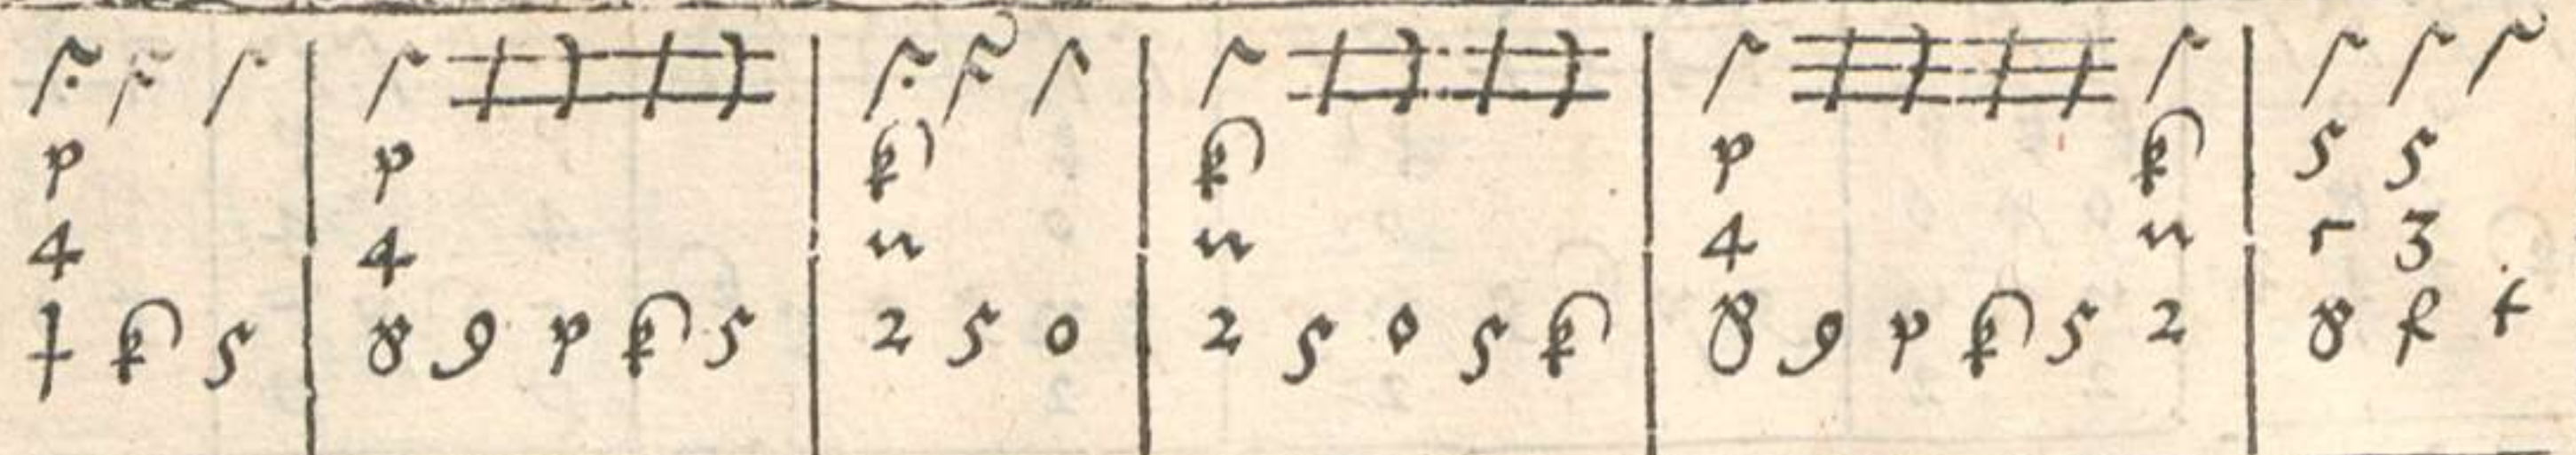 p p k k p k 5 5
4 4 n n 4 n r 3
t k 5 8 9 p k 5 2 5 o 2 5 o 5 k 8 9 p k 5 2 8 f t